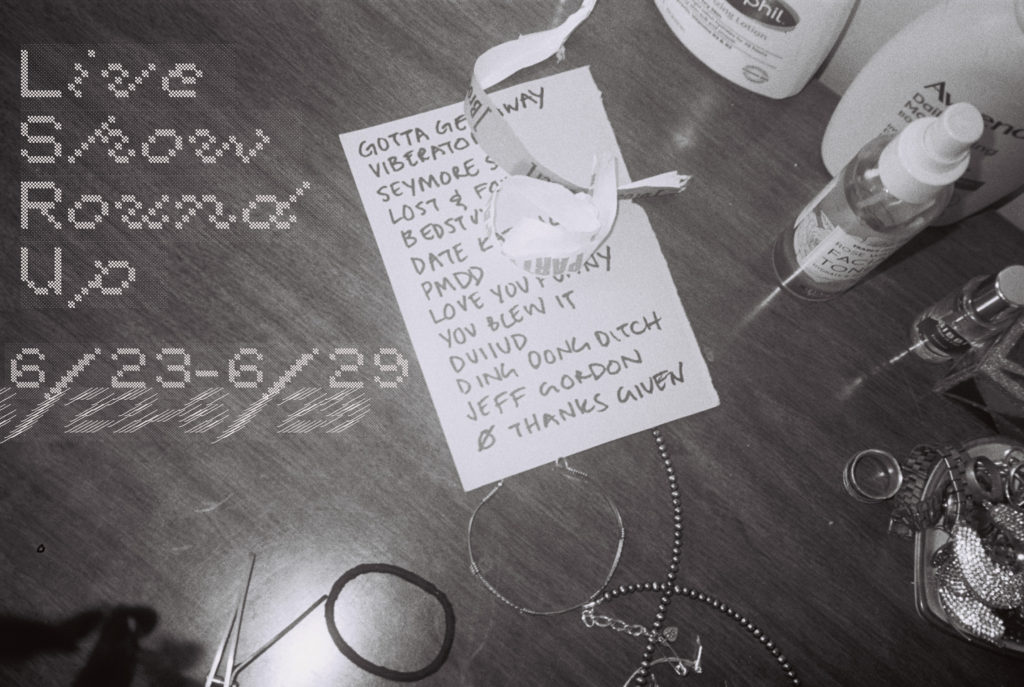 Live
Show
Round
Up
6/23-6/29
GOTTA GE WAY
VIBERATO
SEYMORE S
LOST & FO
BEDST
DATE K
PMDD
LOVE YOU FUNNY
YOU BLEW IT
DUIIUD
DING DONG DITCH
JEFF GORDON
Ø THANKS GIVEN
phil
Lotion
Av eno
Daily
FAC
TON